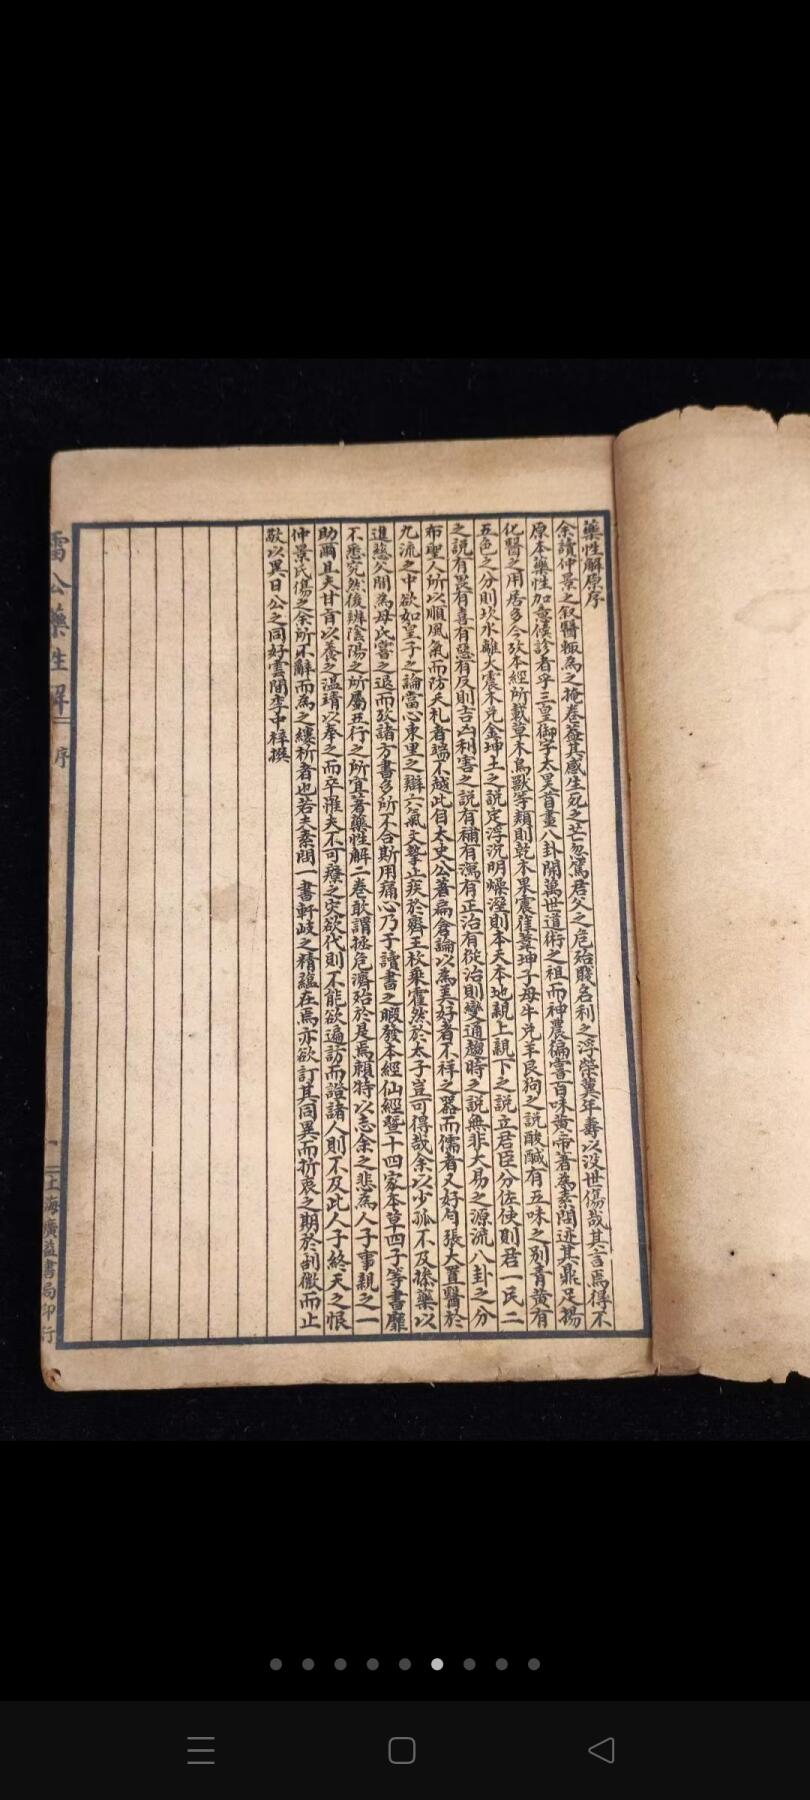 藥性解原序
余讀仲景之叙醫輒為之掩卷蓋其感生死之芒忽篤君父之危殆賤名利之浮榮冀年壽以没世傷哉其言焉得不
原本藥性加意候診者乎三皇御宇太昊首畫八卦開萬世道術之祖而神農徧嘗百味黄帝著為素問迹其鼎足揚
化醫之用居多今攷本經所載草木鳥獸等類則乾木果震萑葦坤子母牛兑羊艮狗之說酸鹹有五味之别青黄有
五色之分則坎水離火震木兑金坤土之說定浮沉明燥溼則本天本地親上親下之說立君臣分佐使則君一民二
之說有畏有喜有惡有反則吉凶利害之說有補有瀉有正治有從治則變通趨時之說無非大易之源流八卦之分
布聖人所以順風氣而防夭札者端不越此自太史公著扁倉論以為美好者不祥之器而儒者又好句張大置醫於
九流之中欲如皇子之論當心東里之辯六氣文摯止疾於齊王枚乘霍然於太子豈可得哉余以少孤不及掺藥以
進慈父間為母氏嘗之退而攷諸方書多所不合斯用痛心乃于讀書之暇發本經仙經暨十四家本草四子等書靡
不悉究然後辨陰陽之所屬五行之所宜著藥性解二卷敢謂拯危濟殆於是焉賴特以志余之悲為人子事親之一
助爾且夫甘旨以養之温凊以奉之而卒罹夫不可療之灾欲代則不能欲遍訪而證諸人則不及此人子終天之恨
仲景氏傷之余所不辭而為之縷析者也若夫素問一書軒歧之精蘊在焉亦欲訂其同異而折衷之期於剞劂而止
敬以異日公之同好雲間李中梓撰
雷公藥性解 序
一 上海廣益書局印行